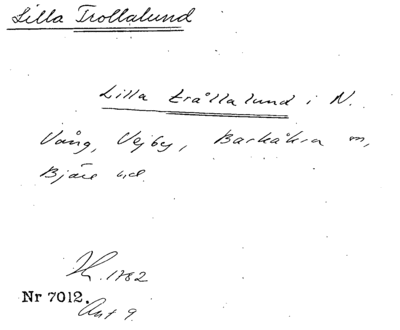 Lilla Trollalund
Lilla trålla lund i N.
Vång, Vejby, Barkåkra m,
Bjäre hd.
1782
Nr 7012.
Akt 9